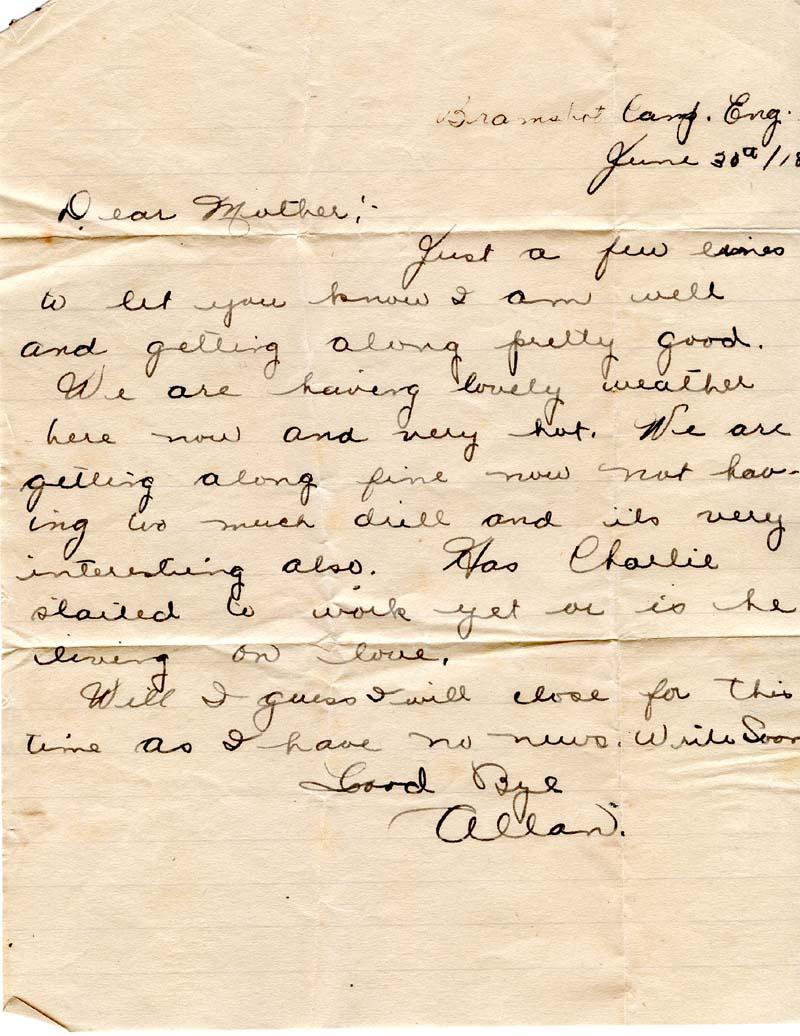 Bramshot Camp. Eng.
June 30th/18
Dear Mother;-
Just a few lines
to let you know I am well
and getting along pretty good.
We are having lovely weather
here now and very hot. We are
getting along fine now not hav-
ing too much drill and its very
interesting also. Has Charlie
started to work yet or is he
living on love.
Well I guess I will close for this
time as I have no news. Write Soon
Good Bye
Allan.